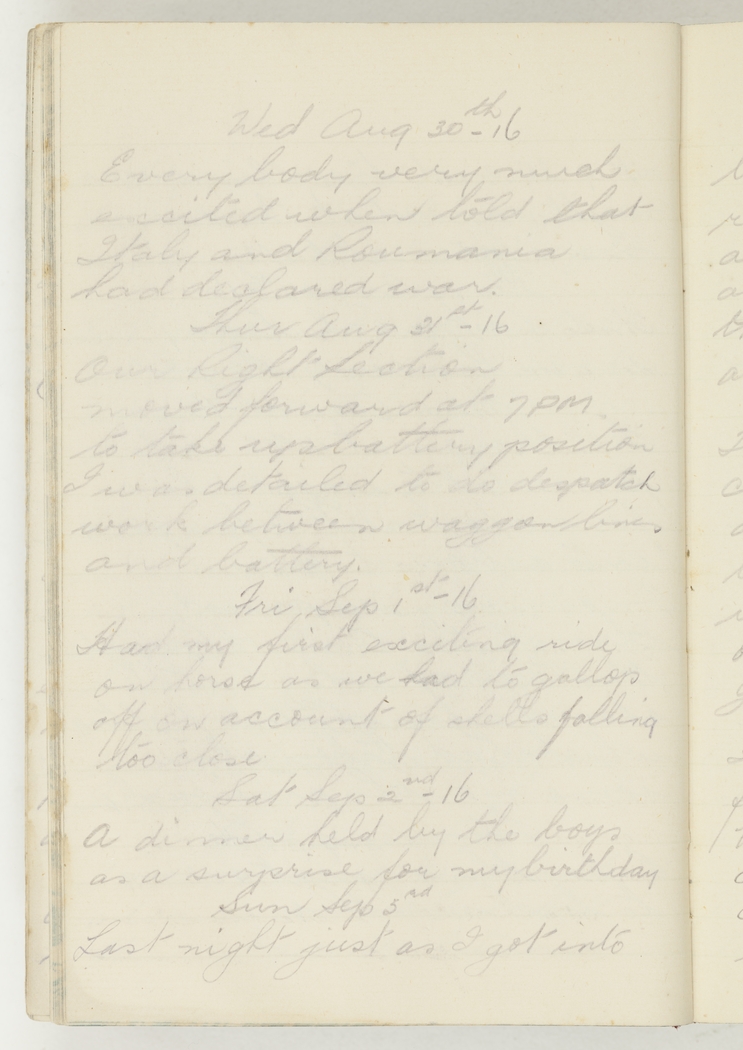 Wed Aug 30th-16
Every body very much
excited when told that
Italy and Roumania
had declared war.
Thur Aug 31st-16
Our Right Section
moved forward at 7 PM
to take up battery position
I was detailed to do despatch
work between waggon lines
and battery.
Fri Sep 1st-16
Had my first exciting ride
on horse as we had to gallop
off on account of shells falling
too close
Sat Sep 2nd-16
A dinner held by the boys
as a surprise for my birthday
Sun Sep 3rd
Last night just as I got into